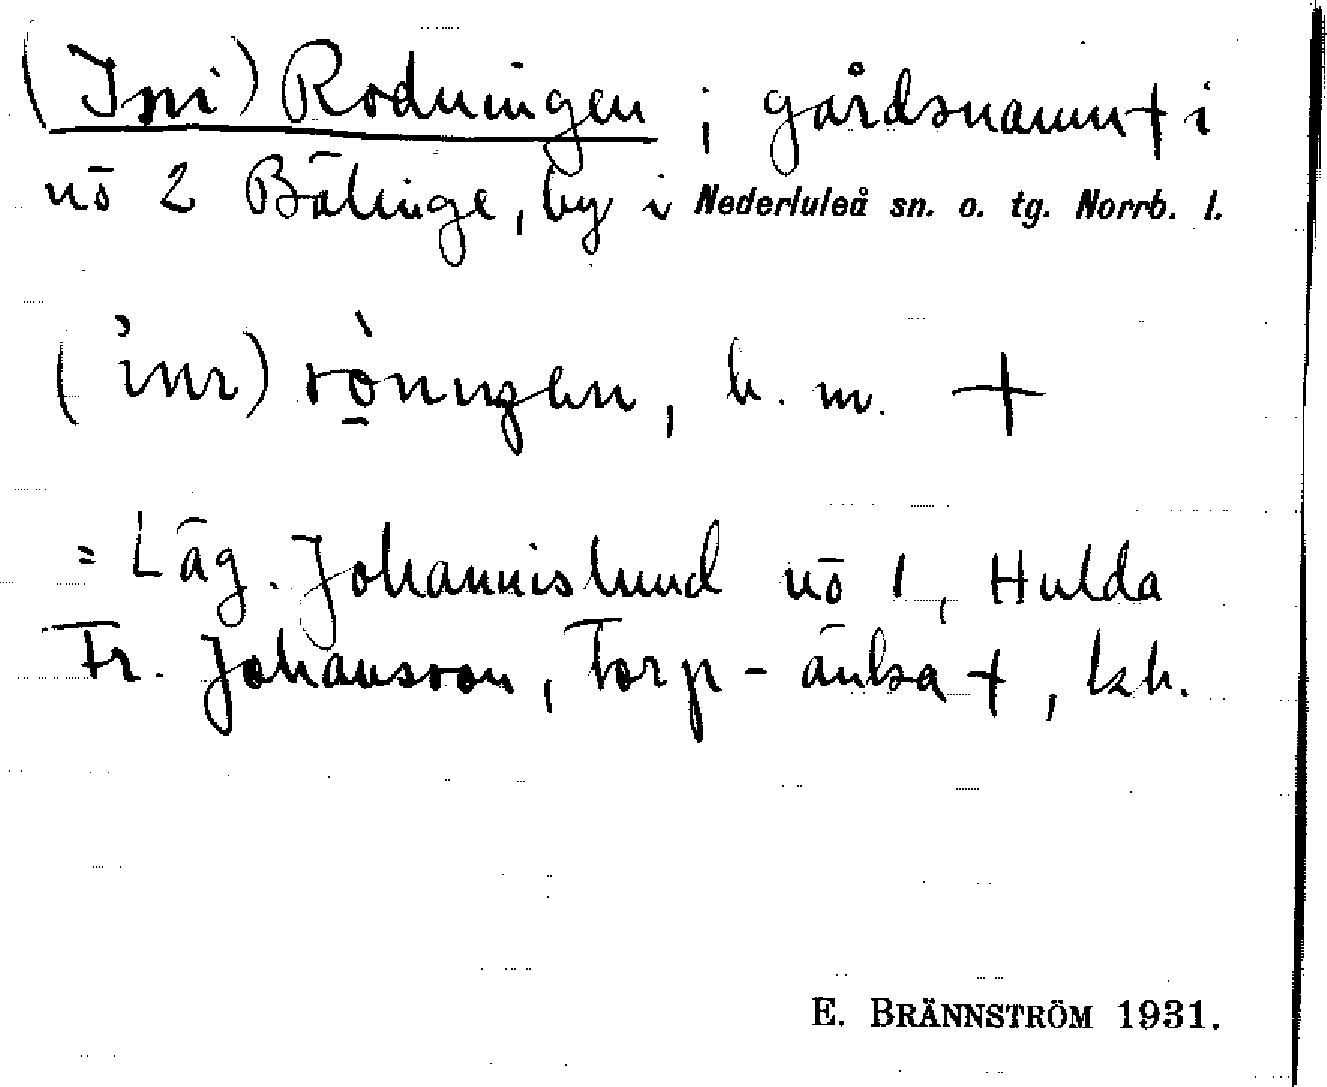 (Ini) Rodningen ; gårdsnamn + i
nō 2 Bälinge, by i Nederluleå sn. o. tg. Norrb. l.
(ìnı) rò̱nıŋen, h. m. +
= Läg. Johannislund nō 1, Hulda
Fr. Johansson, Torp-änka +, kh.
E. BRÄNNSTRÖM 1931.